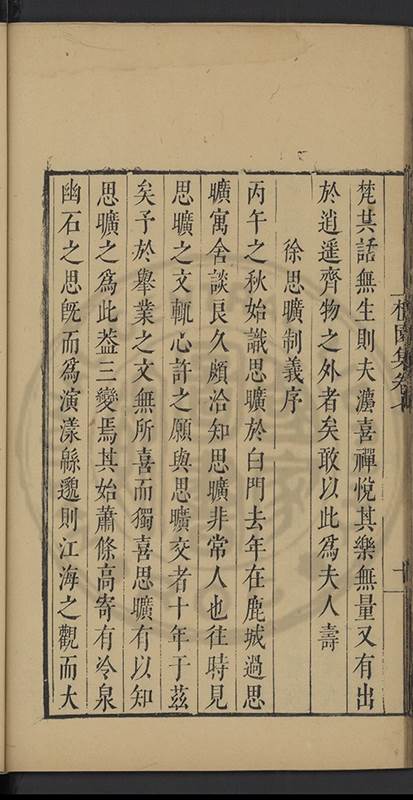 梵共話無生則夫瀍喜禪悅其樂無量又有出
於逍遥齊物之外者矣敢以此爲夫人壽
徐思曠制義序
丙午之秋始識思曠於白門去年在鹿城過思
曠寓舍談良久頗洽知思曠非常人也往時見
思曠之文輒心許之願與思曠交者十年于茲
矣予於舉業之文無所喜而獨喜思曠有以知
思曠之爲此葢三變焉其始蕭條高寄有冷泉
幽石之思旣而爲演漾緜邈則江海之觀而大